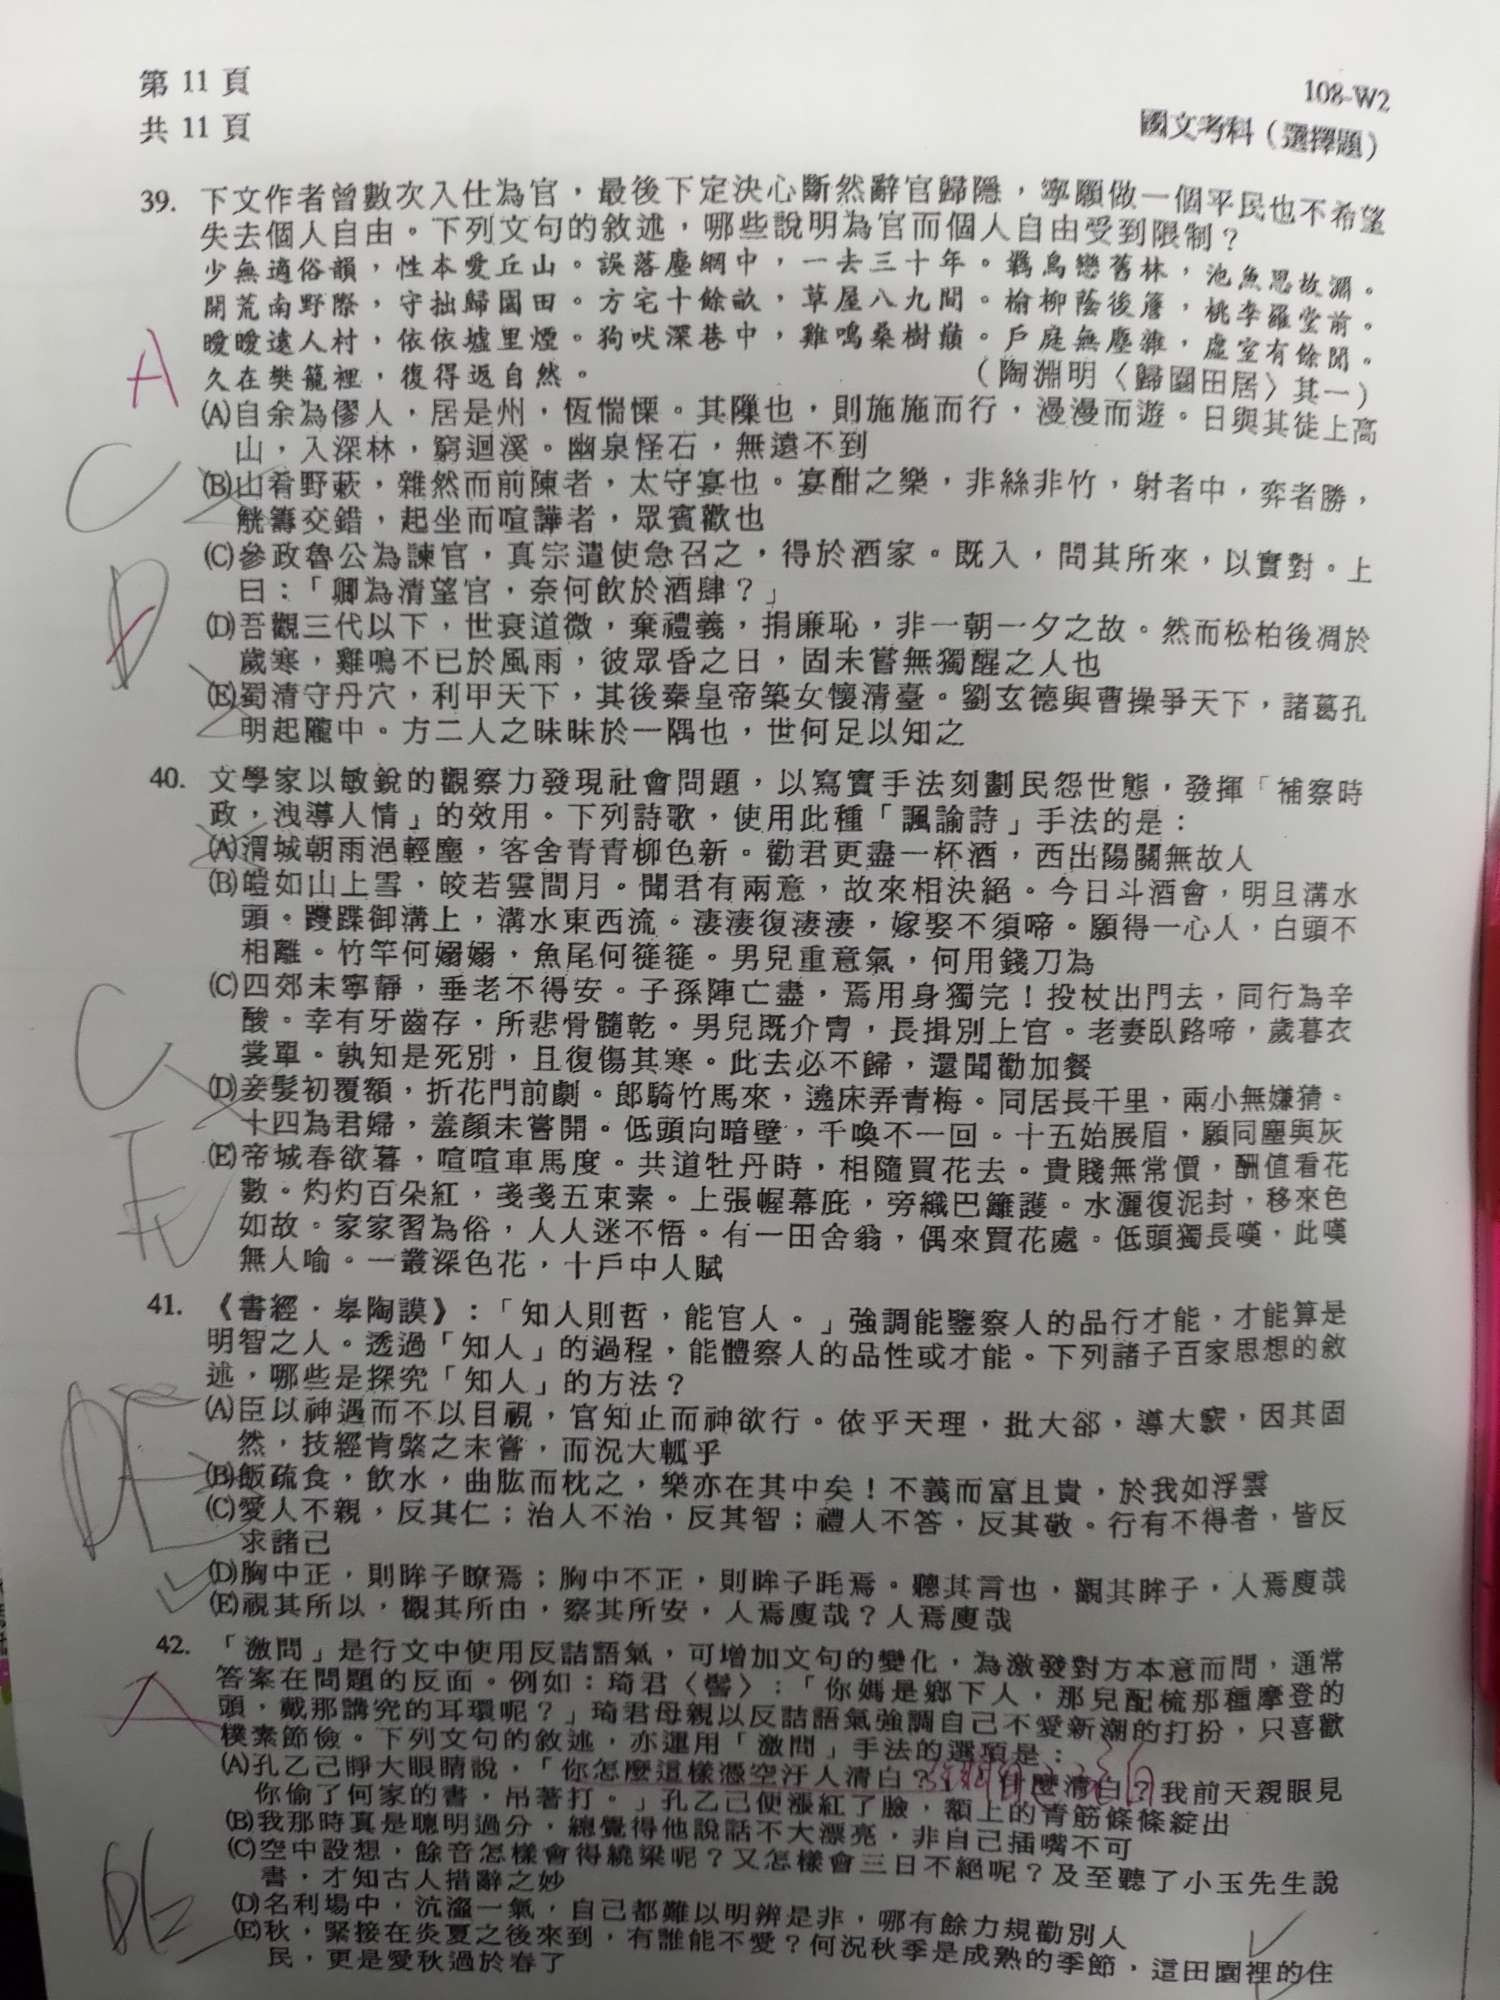 第 11 頁
共 11 頁
108-W2
國文考科（選擇題）
39. 下文作者曾數次入仕為官，最後下定決心斷然辭官歸隱，寧願做一個平民也不希望
失去個人自由。下列文句的敘述，哪些說明為官而個人自由受到限制？
少無適俗韻，性本愛丘山。誤落塵網中，一去三十年。羈鳥戀舊林，池魚思故淵。
開荒南野際，守拙歸園田。方宅十餘畝，草屋八九間。榆柳蔭後簷，桃李羅堂前。
曖曖遠人村，依依墟里煙。狗吠深巷中，雞鳴桑樹巔。戶庭無塵雜，虛室有餘閒。
久在樊籠裡，復得返自然。（陶淵明〈歸園田居〉其一）
A
(A)自余為僇人，居是州，恆惴慄。其隟也，則施施而行，漫漫而遊。日與其徒上高
山，入深林，窮迴溪。幽泉怪石，無遠不到
C
(B)山肴野蔌，雜然而前陳者，太守宴也。宴酣之樂，非絲非竹，射者中，弈者勝，
觥籌交錯，起坐而喧譁者，眾賓歡也
(C)參政魯公為諫官，真宗遣使急召之，得於酒家。既入，問其所來，以實對。上
曰：「卿為清望官，奈何飲於酒肆？」
D
(D)吾觀三代以下，世衰道微，棄禮義，捐廉恥，非一朝一夕之故。然而松柏後凋於
歲寒，雞鳴不已於風雨，彼眾昏之日，固未嘗無獨醒之人也
(E)蜀清守丹穴，利甲天下，其後秦皇帝築女懷清臺。劉玄德與曹操爭天下，諸葛孔
明起隴中。方二人之昧昧於一隅也，世何足以知之
40. 文學家以敏銳的觀察力發現社會問題，以寫實手法刻劃民怨世態，發揮「補察時
政，洩導人情」的效用。下列詩歌，使用此種「諷諭詩」手法的是：
(A)渭城朝雨浥輕塵，客舍青青柳色新。勸君更盡一杯酒，西出陽關無故人
(B)皚如山上雪，皎若雲間月。聞君有兩意，故來相決絕。今日斗酒會，明旦溝水
頭。躞蹀御溝上，溝水東西流。淒淒復淒淒，嫁娶不須啼。願得一心人，白頭不
相離。竹竿何嫋嫋，魚尾何簁簁。男兒重意氣，何用錢刀為
(C)四郊未寧靜，垂老不得安。子孫陣亡盡，焉用身獨完！投杖出門去，同行為辛
酸。幸有牙齒存，所悲骨髓乾。男兒既介胄，長揖別上官。老妻臥路啼，歲暮衣
裳單。孰知是死別，且復傷其寒。此去必不歸，還聞勸加餐
C
(D)妾髮初覆額，折花門前劇。郎騎竹馬來，遶床弄青梅。同居長干里，兩小無嫌猜。
十四為君婦，羞顏未嘗開。低頭向暗壁，千喚不一回。十五始展眉，願同塵與灰
E
(E)帝城春欲暮，喧喧車馬度。共道牡丹時，相隨買花去。貴賤無常價，酬值看花
數。灼灼百朵紅，戔戔五束素。上張幄幕庇，旁織巴籬護。水灑復泥封，移來色
如故。家家習為俗，人人迷不悟。有一田舍翁，偶來買花處。低頭獨長嘆，此嘆
無人喻。一叢深色花，十戶中人賦
41. 《書經．皋陶謨》：「知人則哲，能官人。」強調能鑒察人的品行才能，才能算是
明智之人。透過「知人」的過程，能體察人的品性或才能。下列諸子百家思想的敘
述，哪些是探究「知人」的方法？
(A)臣以神遇而不以目視，官知止而神欲行。依乎天理，批大郤，導大窾，因其固
然，技經肯綮之未嘗，而況大軱乎
DE
(B)飯疏食，飲水，曲肱而枕之，樂亦在其中矣！不義而富且貴，於我如浮雲
(C)愛人不親，反其仁；治人不治，反其智；禮人不答，反其敬。行有不得者，皆反
求諸己
(D)胸中正，則眸子瞭焉；胸中不正，則眸子眊焉。聽其言也，觀其眸子，人焉廋哉
(E)視其所以，觀其所由，察其所安，人焉廋哉？人焉廋哉
42. 「激問」是行文中使用反詰語氣，可增加文句的變化，為激發對方本意而問，通常
答案在問題的反面。例如：琦君〈髻〉：「你媽是鄉下人，那兒配梳那種摩登的
頭，戴那講究的耳環呢？」琦君母親以反詰語氣強調自己不愛新潮的打扮，只喜歡
樸素節儉。下列文句的敘述，亦運用「激問」手法的選項是：
A
(A)孔乙己睜大眼睛說，「你怎麼這樣憑空汙人清白？」「什麼清白？我前天親眼見
你偷了何家的書，吊著打。」孔乙己便漲紅了臉，額上的青筋條條綻出
(B)我那時真是聰明過分，總覺得他說話不大漂亮，非自己插嘴不可
(C)空中設想，餘音怎樣會得繞梁呢？又怎樣會三日不絕呢？及至聽了小玉先生說
書，才知古人措辭之妙
(D)名利場中，沆瀣一氣，自己都難以明辨是非，哪有餘力規勸別人
(E)秋，緊接在炎夏之後來到，有誰能不愛？何況秋季是成熟的季節，這田園裡的住
民，更是愛秋過於春了